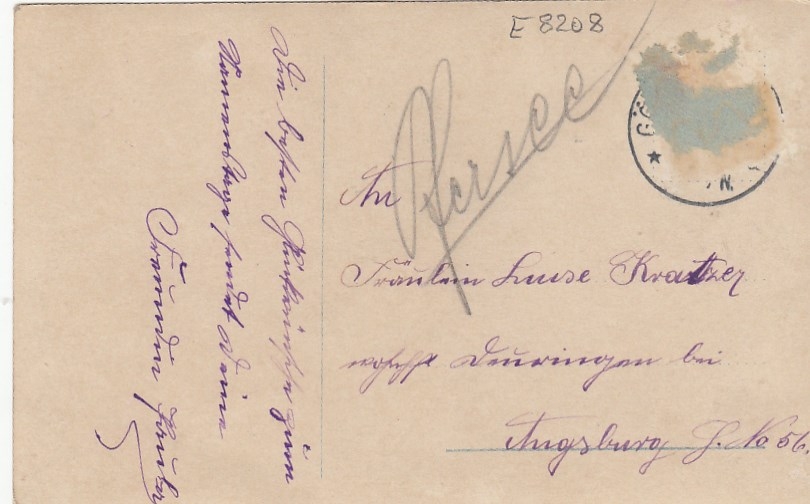 E 8208
Pfersee
An
Fräulein Luise Kratzer
wohhft Deuringen bei
Augsburg H. No 56.
Die besten Glückwünsche zum
Namenstage sendet Deine
Freundin